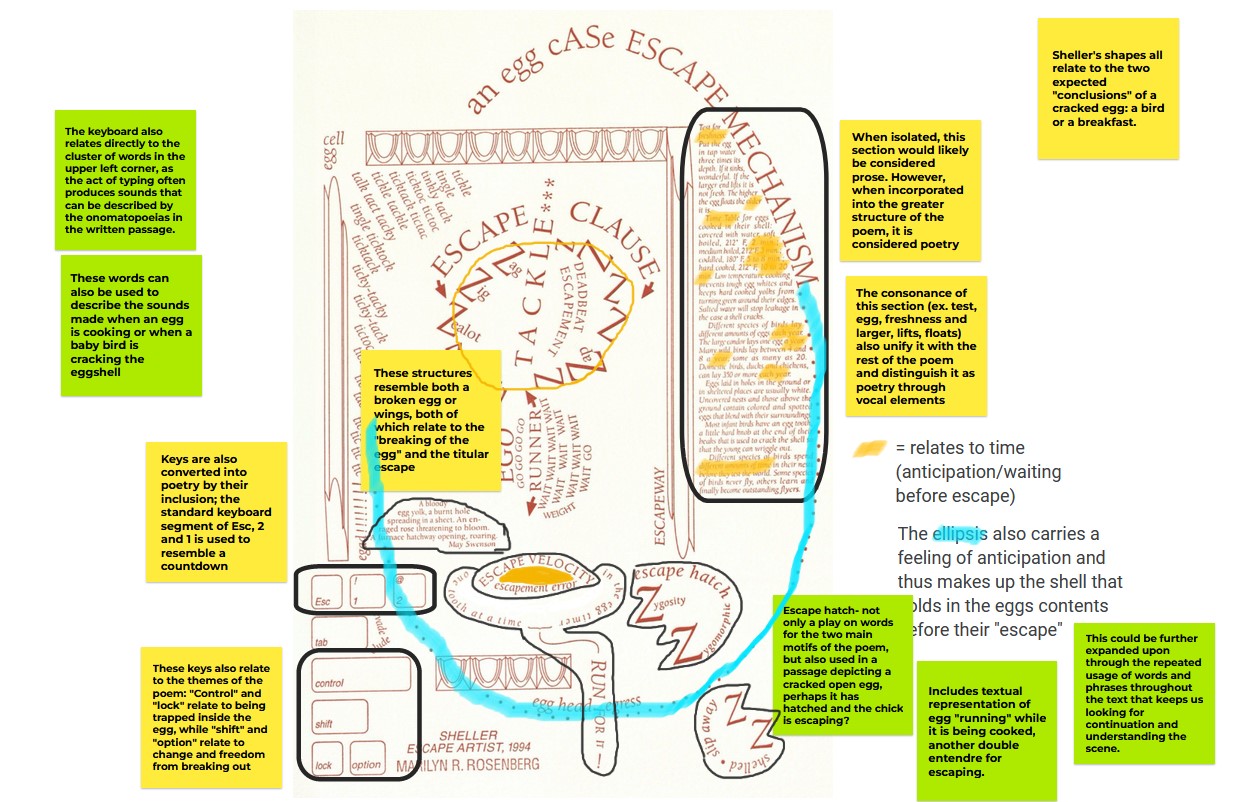 an egg cASe ESCAPE MECHANISM
The keyboard also
relates directly to the
cluster of words in the
upper left corner, as
the act of typing often
produces sounds that
can be described by
the onomatopoeias in
the written passage.
These words can
also be used to
describe the sounds
made when an egg
is cooking or when a
baby bird is
cracking the
eggshell
Keys are also
converted into
poetry by their
inclusion; the
standard keyboard
segment of Esc, 2
and 1 is used to
resemble a
countdown
These keys also relate
to the themes of the
poem: "Control" and
"lock" relate to being
trapped inside the
egg, while "shift" and
"option" relate to
change and freedom
from breaking out
cell
egg
tickle
tingle
tinkly tack
tictoc tictoc
ticktack tictac
tickle tackle
talk tact tacky
tingle ticktock
ticktack
ticky-tacky
ticky-tack
ESCAPE CLAUSE
TACKLE***
DEADBEAT
ESCAPEMENT
Z ag
Z ig
Z ealot
Z ap
These structures
resemble both a
broken egg or
wings, both of
which relate to the
"breaking of the
egg" and the titular
escape
EGGO
GO GO GO GO
RUNNER
WAIT WAIT WAIT
WAIT WAIT WAIT
WAIT WAIT
WAIT GO
WEIGHT
ESCAPEWAY
Test for
freshness
Put the egg
in tap water
three times its
depth. If it sinks,
wonderful. If the
larger end lifts it is
not fresh. The higher
the egg floats the older
it is.
Time Table for eggs
cooked in their shell:
covered with water, soft
boiled, 212° F, 2
medium boiled, 212° F,
coddled, 180° F,
hard cooked, 212° F,
Low temperature cooking
prevents tough egg whites and
keeps hard cooked yolks from
turning green around their edges.
Salted water will stop leakage in
the case a shell cracks.
Different species of birds lay
different amounts of eggs each year.
The large condor lays one egg a year.
Many wild birds lay between 4 and
a year some as many as 20.
Domestic birds, ducks and chickens,
can lay 350 or more each year.
Eggs laid in holes in the ground or
in sheltered places are usually white.
Uncovered nests and those above the
ground contain colored and spotted
eggs that blend with their surroundings.
Most infant birds have an egg tooth
a little hard knob at the end of their
beaks that is used to crack the shell so
that the young can wriggle out.
Different species of birds spend
different amounts of time in their nests
before they test the world. Some species
of birds never fly, others learn and
finally become outstanding flyers.
A bloody
egg yolk, a burnt hole
spreading in a sheet. An en-
raged rose threatening to bloom.
A furnace hatchway opening, roaring.
May Swenson
Esc
!
1
@
2
tab
control
shift
lock
option
ESCAPE VELOCITY
escapement error
one tooth at a time
in the egg timer
RUN FOR IT !
escape hatch
Z ygosity
Z ygomorphic
egg head egress
slip away
shelled
Z
Z
SHELLER
ESCAPE ARTIST, 1994
MARILYN R. ROSENBERG
Sheller's shapes all
relate to the two
expected
"conclusions" of a
cracked egg: a bird
or a breakfast.
When isolated, this
section would likely
be considered
prose. However,
when incorporated
into the greater
structure of the
poem, it is
considered poetry
The consonance of
this section (ex. test,
egg, freshness and
larger, lifts, floats)
also unify it with the
rest of the poem
and distinguish it as
poetry through
vocal elements
= relates to time
(anticipation/waiting
before escape)
The ellipsis also carries a
feeling of anticipation and
thus makes up the shell that
olds in the eggs contents
efore their "escape"
Escape hatch- not
only a play on words
for the two main
motifs of the poem,
but also used in a
passage depicting a
cracked open egg,
perhaps it has
hatched and the chick
is escaping?
Includes textual
representation of
egg "running" while
it is being cooked,
another double
entendre for
escaping.
This could be further
expanded upon
through the repeated
usage of words and
phrases throughout
the text that keeps us
looking for
continuation and
understanding the
scene.